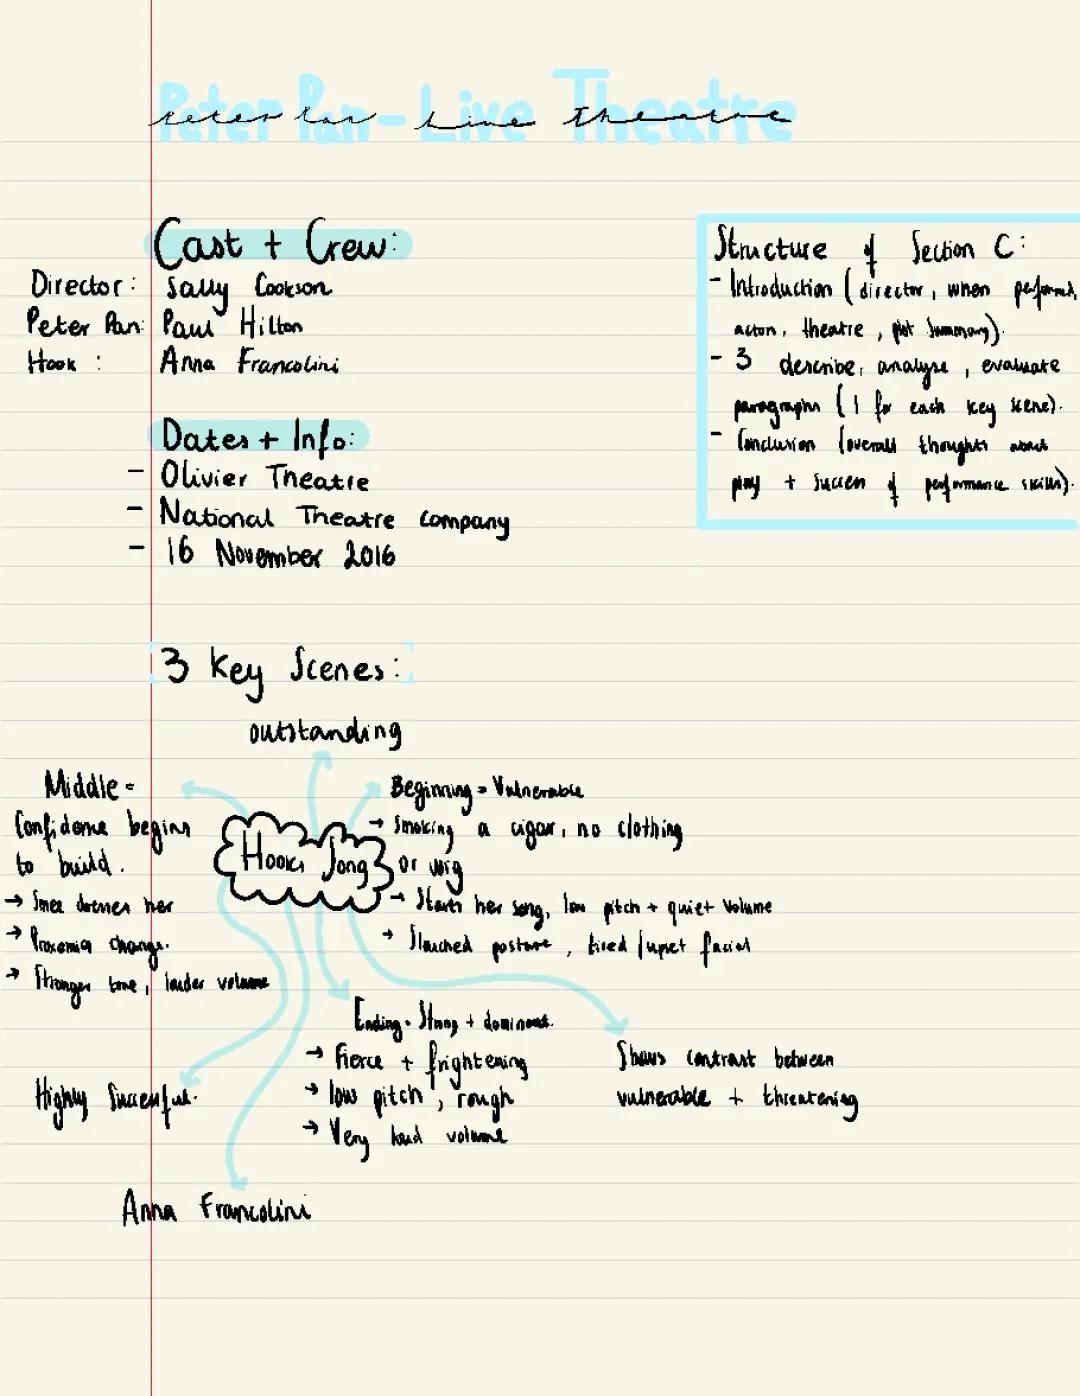 Peter Pan - Live Theatre
Cast + Crew:
Director: Sally Cookson
Peter Pan: Paul Hilton
Hook: Anna Francolini
Structure of Section C:
- Introduction (director, when performed,
actors, theatre, plot summary).
- 3 describe, analyse, evaluate
paragraphs (1 for each key scene).
- Conclusion (overall thoughts about
play + success of performance skills).
Dates + Info:
- Olivier Theatre
- National Theatre Company
- 16 November 2016
3 Key Scenes:
outstanding
Hooks Song
Middle =
Confidence begins
to build.
→ Smee dresses her
→ Proxemics change.
→ Stronger tone, louder volume
Beginning = Vulnerable
→ Smoking a cigar, no clothing
or wig
→ Starts her song, low pitch + quiet volume
→ Slouched posture, tired/upset facial
Ending = Strong + dominant.
→ Fierce + frightening
→ low pitch, rough
→ Very loud volume
Shows contrast between
vulnerable + threatening
Highly Successful.
Anna Francolini